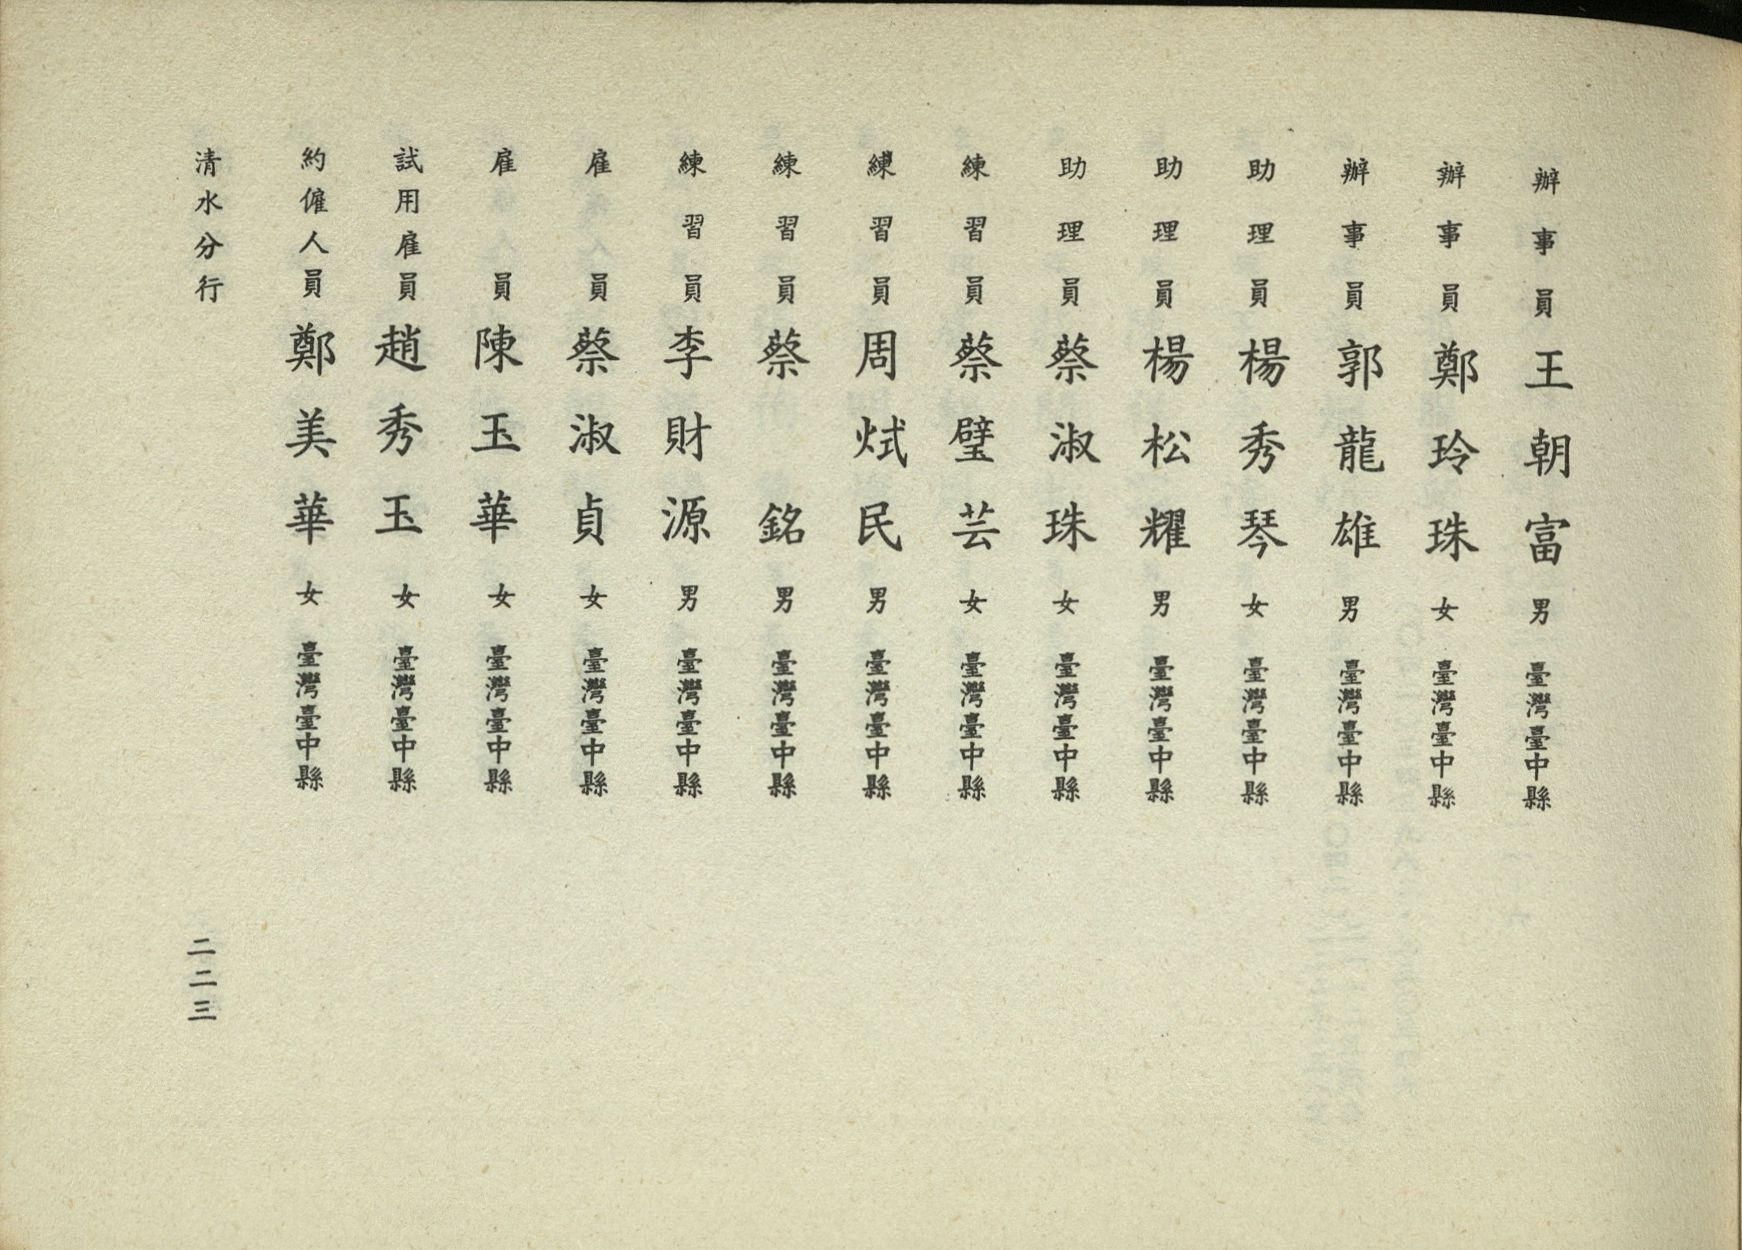 辦事員王朝富男臺灣臺中縣
辦事員鄭玲珠女臺灣臺中縣
辦事員郭龍雄男臺灣臺中縣
助理員楊秀琴女臺灣臺中縣
助理員楊松耀男臺灣臺中縣
助理員蔡淑珠女臺灣臺中縣
練習員蔡璧芸女臺灣臺中縣
練習員周烒民男臺灣臺中縣
練習員蔡銘男臺灣臺中縣
練習員李財源男臺灣臺中縣
雇員蔡淑貞女臺灣臺中縣
雇員陳玉華女臺灣臺中縣
試用雇員趙秀玉女臺灣臺中縣
約僱人員鄭美華女臺灣臺中縣
清水分行
二二三